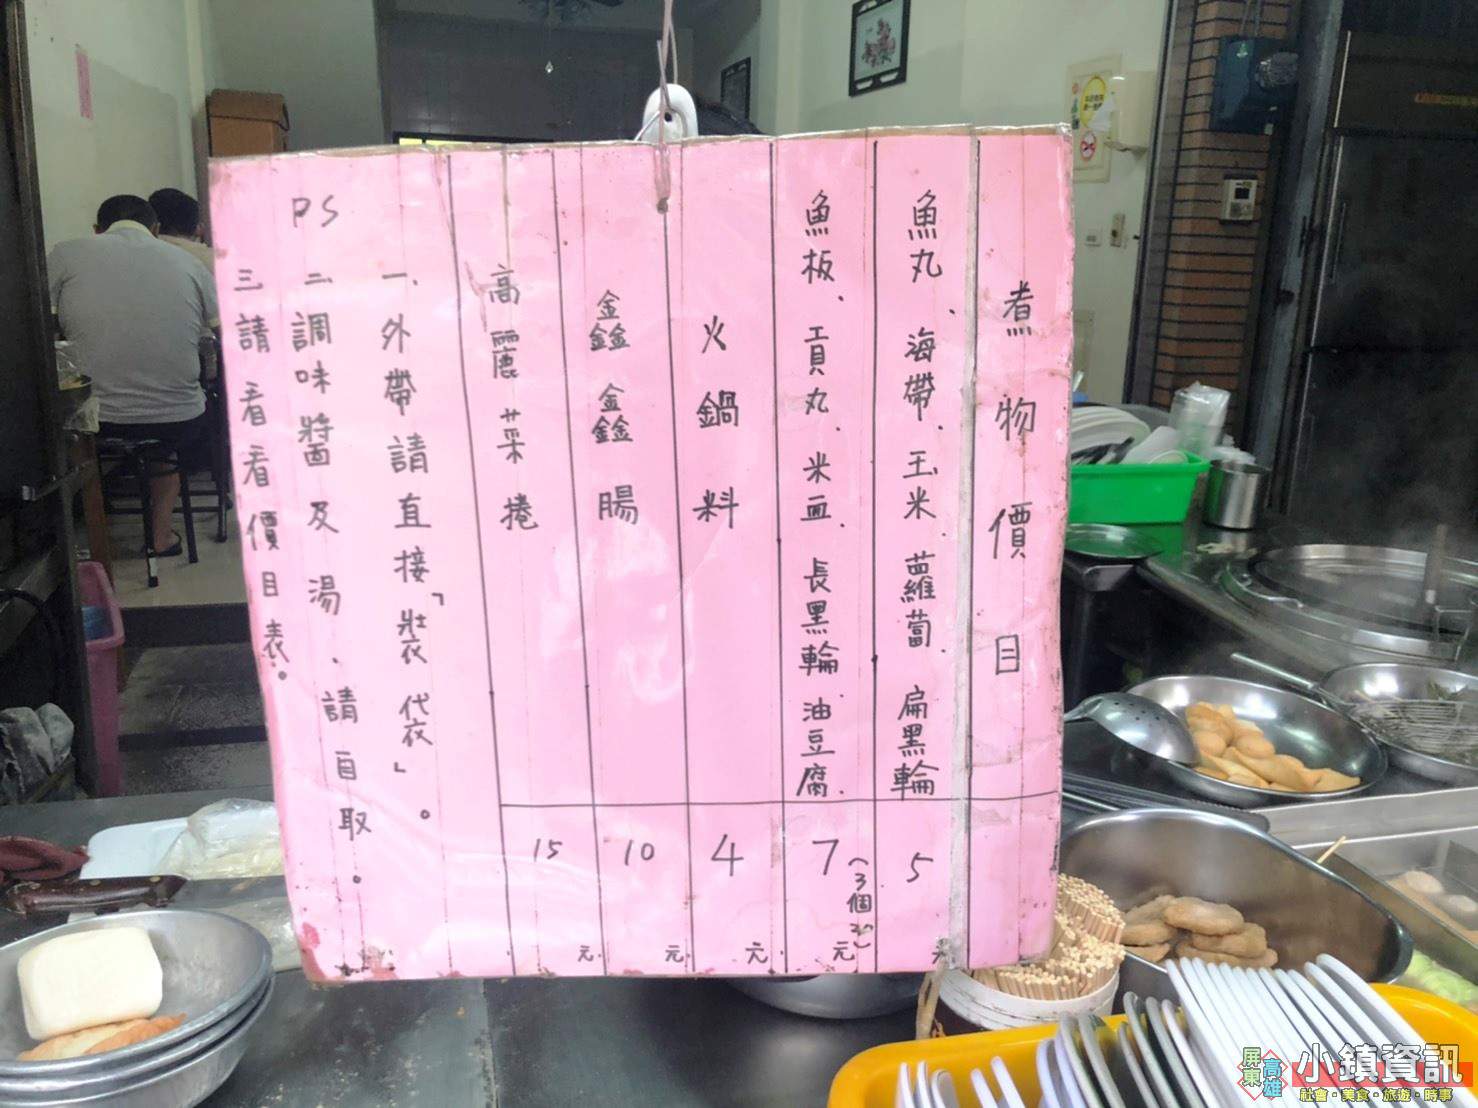 煮物價目
魚丸、海帶、玉米、蘿蔔、扁黑輪 5元
魚板、貢丸、米血、長黑輪、油豆腐、 7(3個20)元
火鍋料 4元
鑫鑫腸 10元
高麗菜捲 15元
PS
一、外帶請直接「裝袋」。
二調味醬及湯、請自取。
三請看看價目表。
屏東
高雄
小鎮資訊
社會・美食・旅遊・時事